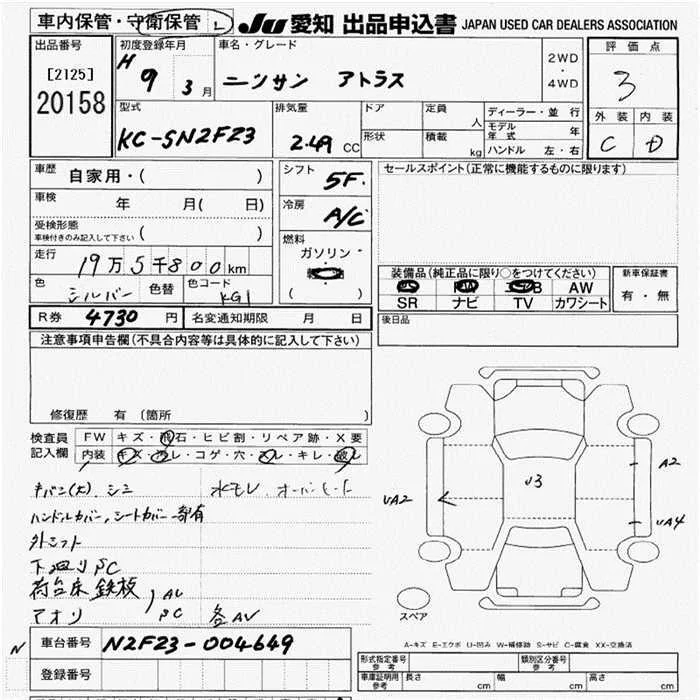 車内保管・守衛保管 L JU 愛知 出品申込書 JAPAN USED CAR DEALERS ASSOCIATION
出品番号 初度登録年月 車名・グレード 2WD・4WD 評価点
[2125] H 9 3月 ニッサン アトラス 3
20158
型式 排気量 ドア 定員 人 ディーラー・並行 外装 内装
KC-SN2F23 2.49 CC 形状 積載 kg モデル年式 年 C D
ハンドル 左・右
車歴 自家用・( ) シフト 5F. セールスポイント(正常に機能するものに限ります)
車検 年 月( 日) 冷房 A/C
受検形態 車検付きのみ記入して下さい ( ) 燃料
走行 19万5千800km ガソリン 装備品(純正品に限り○をつけてください) 新車保証書
色 シルバー 色替 色コード KG1 ( ) AW 有・無
SR ナビ TV カワシート
R券 4730 円 名変通知期限 月 日 後日品
注意事項申告欄(不具合内容等は具体的に記入して下さい)
修復歴 有(箇所 )
検査員記入欄 FW キズ・飛石・ヒビ割・リペア跡・X要
内装 キズ・汚レ・コゲ・穴・スレ・キレ・破レ
キバミ(大)、シミ 水モレ、オーバーヒート
ハンドルカバー,シートカバー
外シフト
下回りSC
荷台床 鉄板 AU
アオリ SC 各AV
U3
A2
UA2
UA4
スペア
A-キズ E-エクボ U-凹み W-補修跡 S-サビ C-腐食 XX-交換済
N 車台番号 N2F23-004649
登録番号
形式指定番号 参考 類別区分番号 参考
車庫証明用 参考 長さ cm 幅 cm 高さ cm